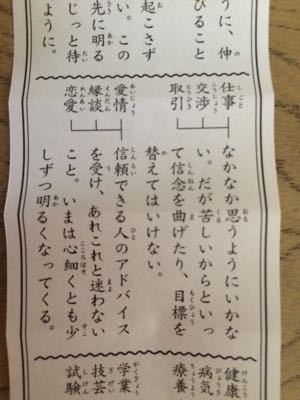 うに、伸
びること
起こさず
い。この
先に明る
じっと待
ように。
仕事
交渉
取引
なかなか思うようにいかな
い。だが苦しいからといっ
て信念を曲げたり、目標を
替えてはいけない。
愛情
縁談
恋愛
信頼できる人のアドバイス
を受け、あれこれと迷わない
こと。いまは心細くとも少
しずつ明るくなってくる。
健康
病気
療養
学業
技芸
試験